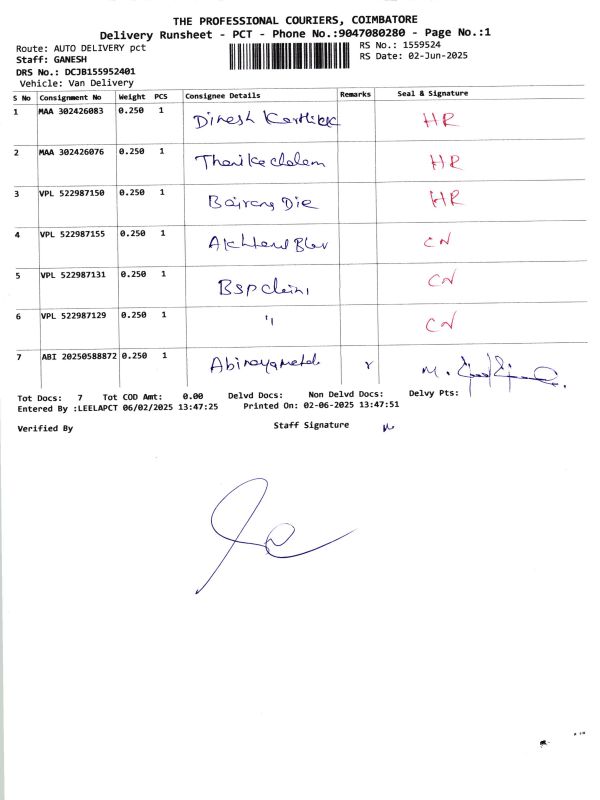 THE PROFESSIONAL COURIERS, COIMBATORE
Delivery Runsheet - PCT - Phone No.:9047080280 - Page No.:1
Route: AUTO DELIVERY pct RS No.: 1559524
Staff: GANESH RS Date: 02-Jun-2025
DRS No.: DCJB155952401
Vehicle: Van Delivery
S No Consignment No Weight PCS Consignee Details Remarks Seal & Signature
1 MAA 302426083 0.250 1 Dinesh HR
2 MAA 302426076 0.250 1 HR
3 VPL 522987150 0.250 1 HR
4 VPL 522987155 0.250 1 CN
5 VPL 522987131 0.250 1 CN
6 VPL 522987129 0.250 1 " CN
7 ABI 20250588872 0.250 1 M.
Tot Docs: 7 Tot COD Amt: 0.00 Delvd Docs: Non Delvd Docs: Delvy Pts:
Entered By :LEELAPCT 06/02/2025 13:47:25 Printed On: 02-06-2025 13:47:51
Verified By Staff Signature